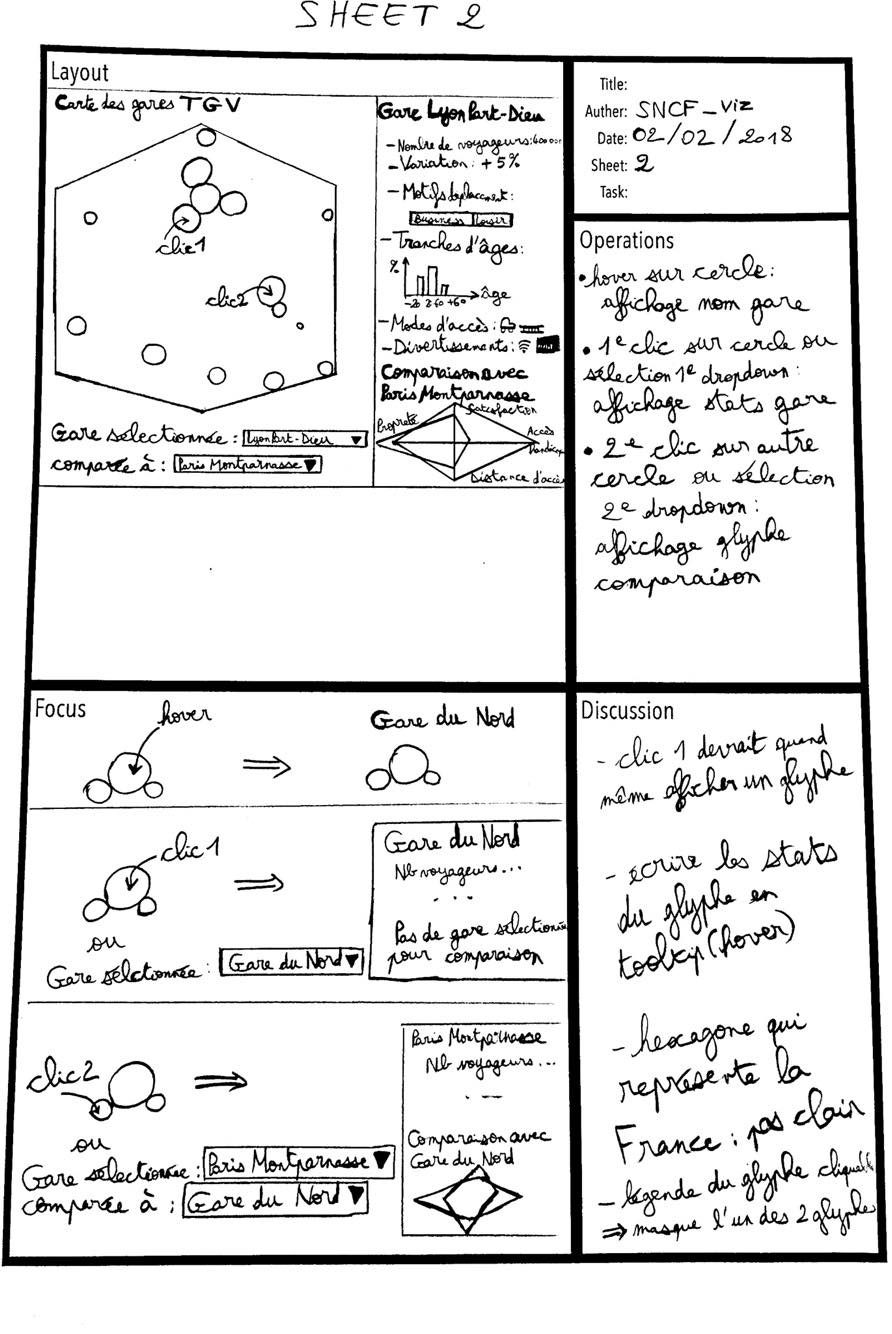 SHEET 2
Layout
Carte des gares TGV
clic1
clic2
Gare sélectionnée : Lyon Part-Dieu ▼
comparée à : Paris Montparnasse ▼
Gare Lyon Part-Dieu
- Nombre de voyageurs:
- Variation : +5%
- Motifs déplacement :
Business Loisir
- Tranches d'âges :
%
âge
- Modes d'accès :
- Divertissements :
Comparaison avec
Paris Montparnasse
Satisfaction
Propreté
Accès
Handicap
Distance d'accès
Title:
Auther: SNCF_Viz
Date: 02/02/2018
Sheet: 2
Task:
Operations
• hover sur cercle :
affichage nom gare
• 1e clic sur cercle ou
sélection 1e dropdown :
affichage stats gare
• 2e clic sur autre
cercle ou sélection
2e dropdown :
affichage glyphe
comparaison
Focus
hover
⇒
Gare du Nord
clic1
⇒
ou
Gare sélctionnée : Gare du Nord ▼
Gare du Nord
Nb voyageurs...
...
Pas de gare sélectionnée
pour comparaison
clic2
⇒
ou
Gare sélectionnée : Paris Montparnasse ▼
comparée à : Gare du Nord ▼
Paris Montparnasse
Nb voyageurs...
Comparaison avec
Gare du Nord
Discussion
- clic 1 devrait quand
même afficher un glyphe
- écrire les stats
du glyphe en
tooltip (hover)
- hexagone qui
représente la
France : pas clair
- légende du glyphe
⇒ masque l'un des 2 glyphes